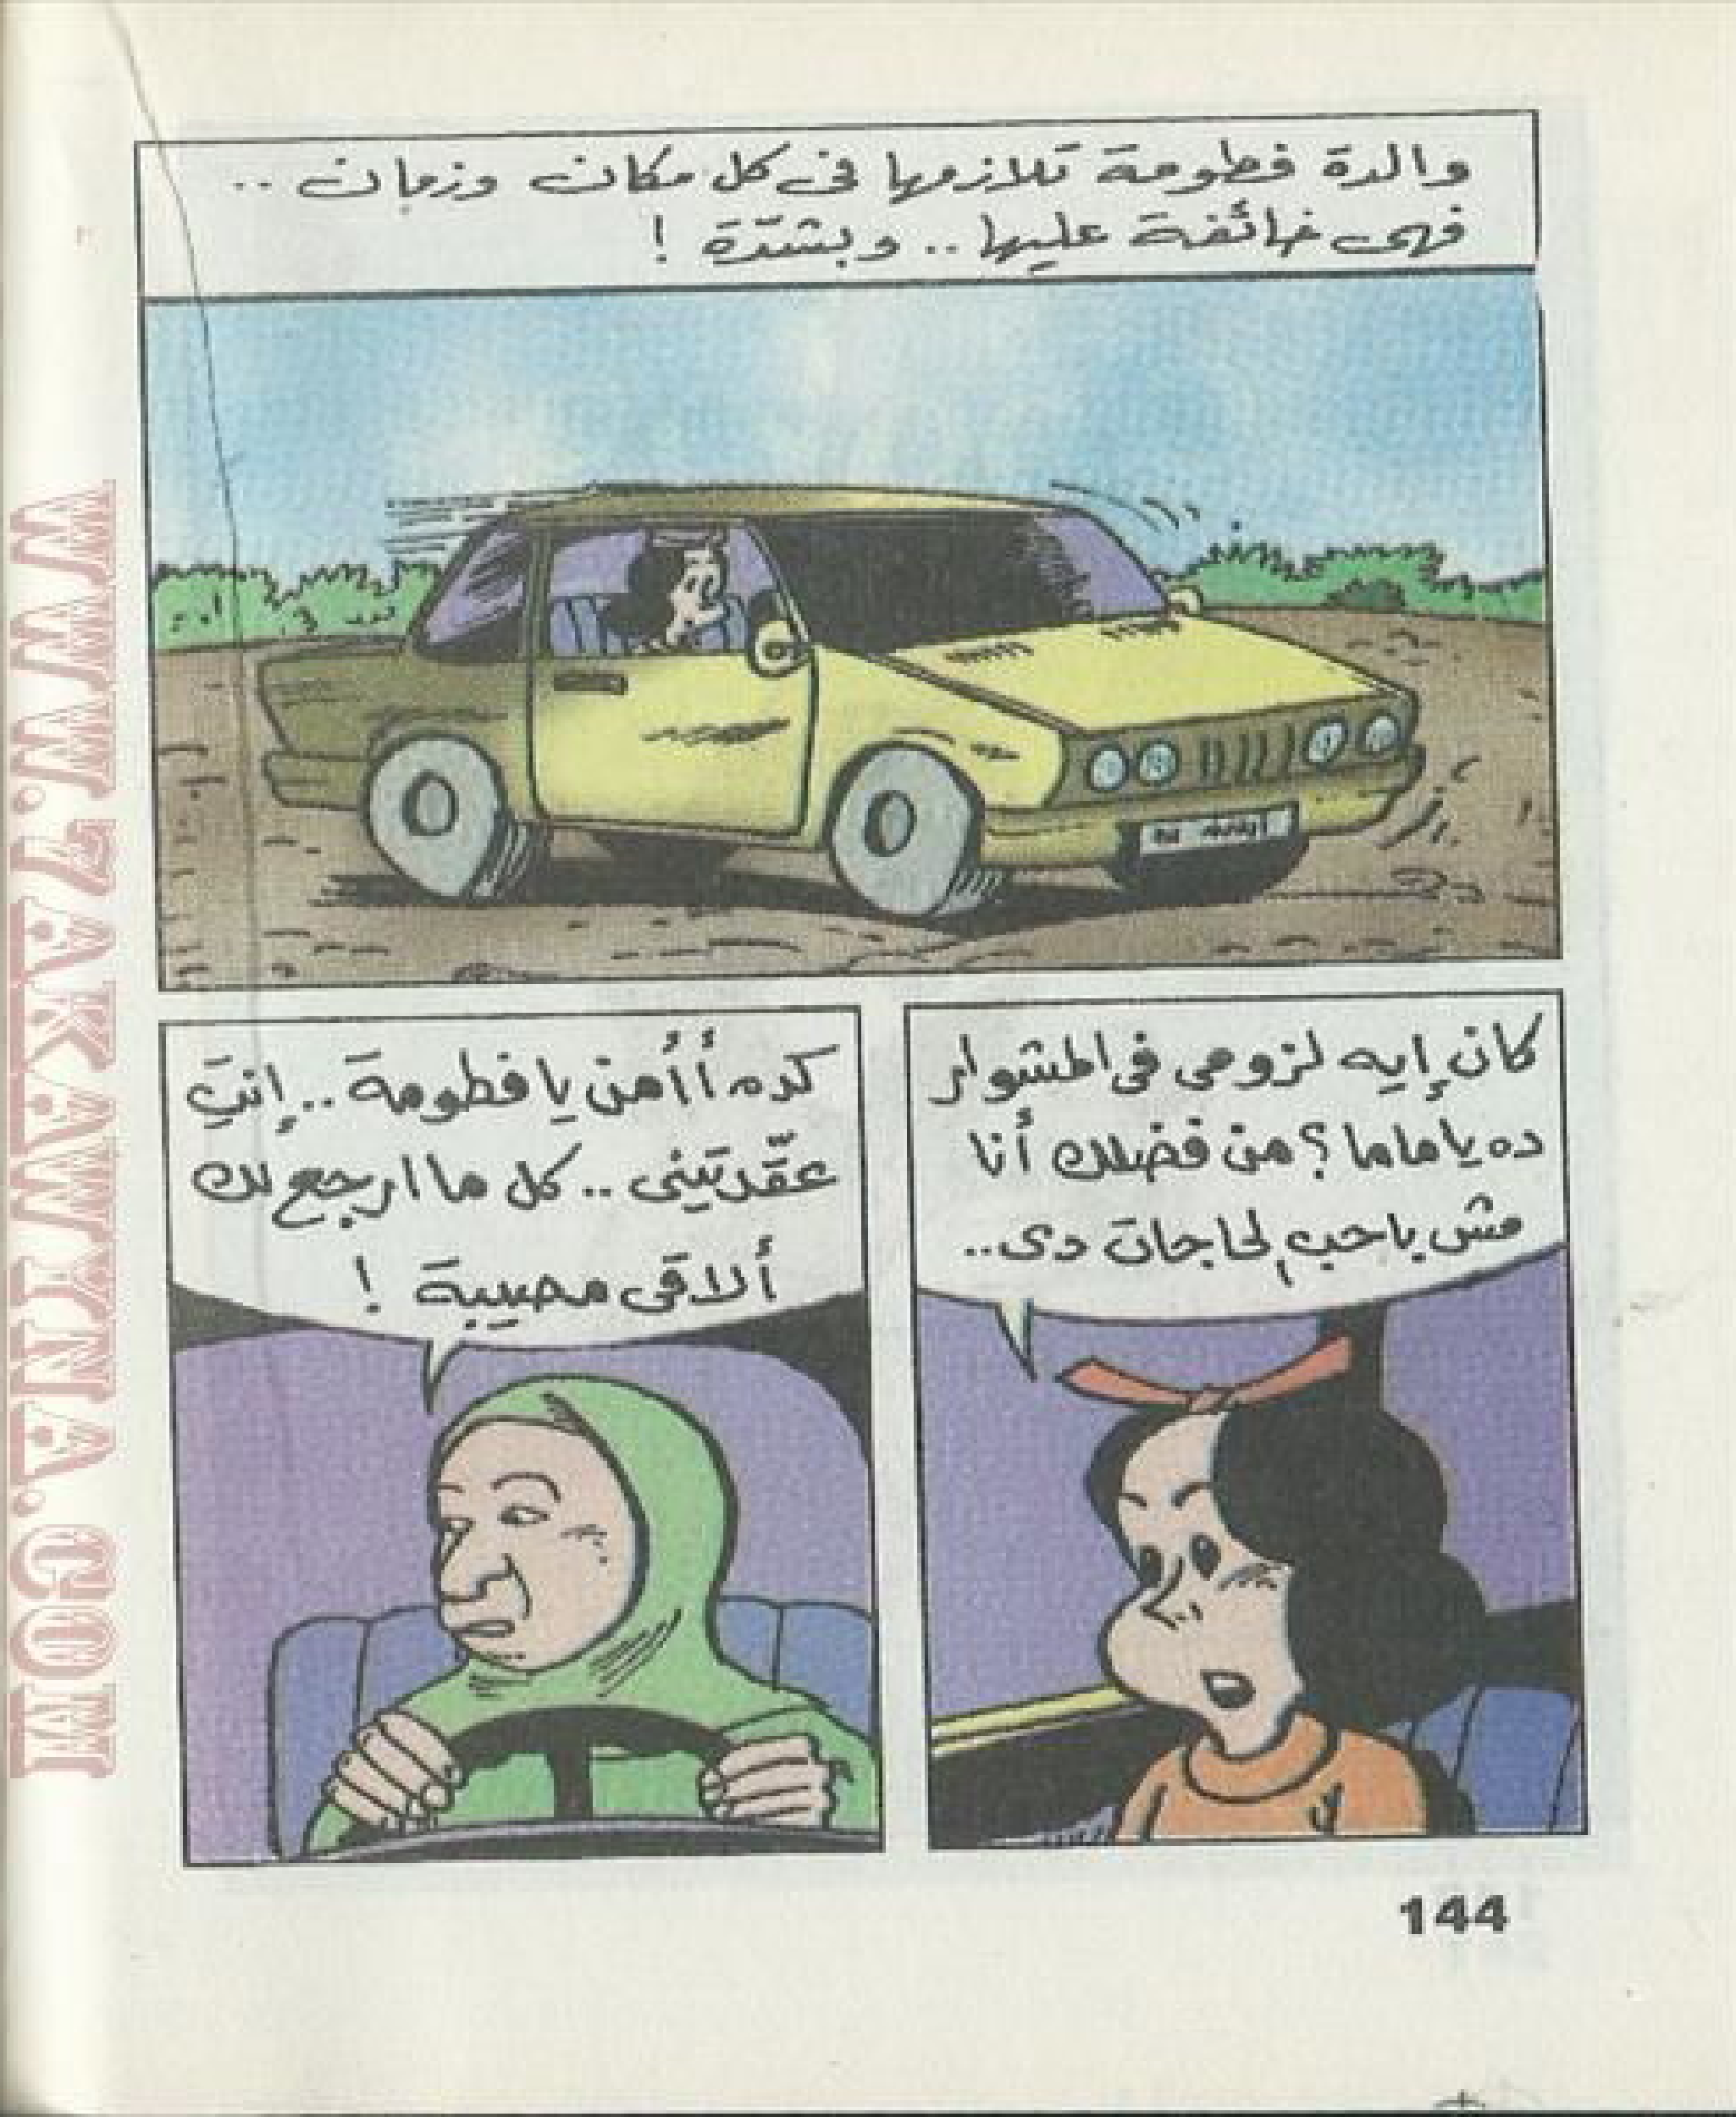 والدة فطومة تلازمها فى كل مكان وزمان ..
فهى خائفة عليها .. وبشدّة !
كان إيه لزومى فى المشوار
ده يا ماما ؟ من فضلك أنا
مش باحب الحاجات دى ..
كده أأمن يا فطومة .. إنتِ
عقّدتينى .. كل ما ارجع لك
ألاقى مصيبة !
144
WWW.7AKAWINA.COM